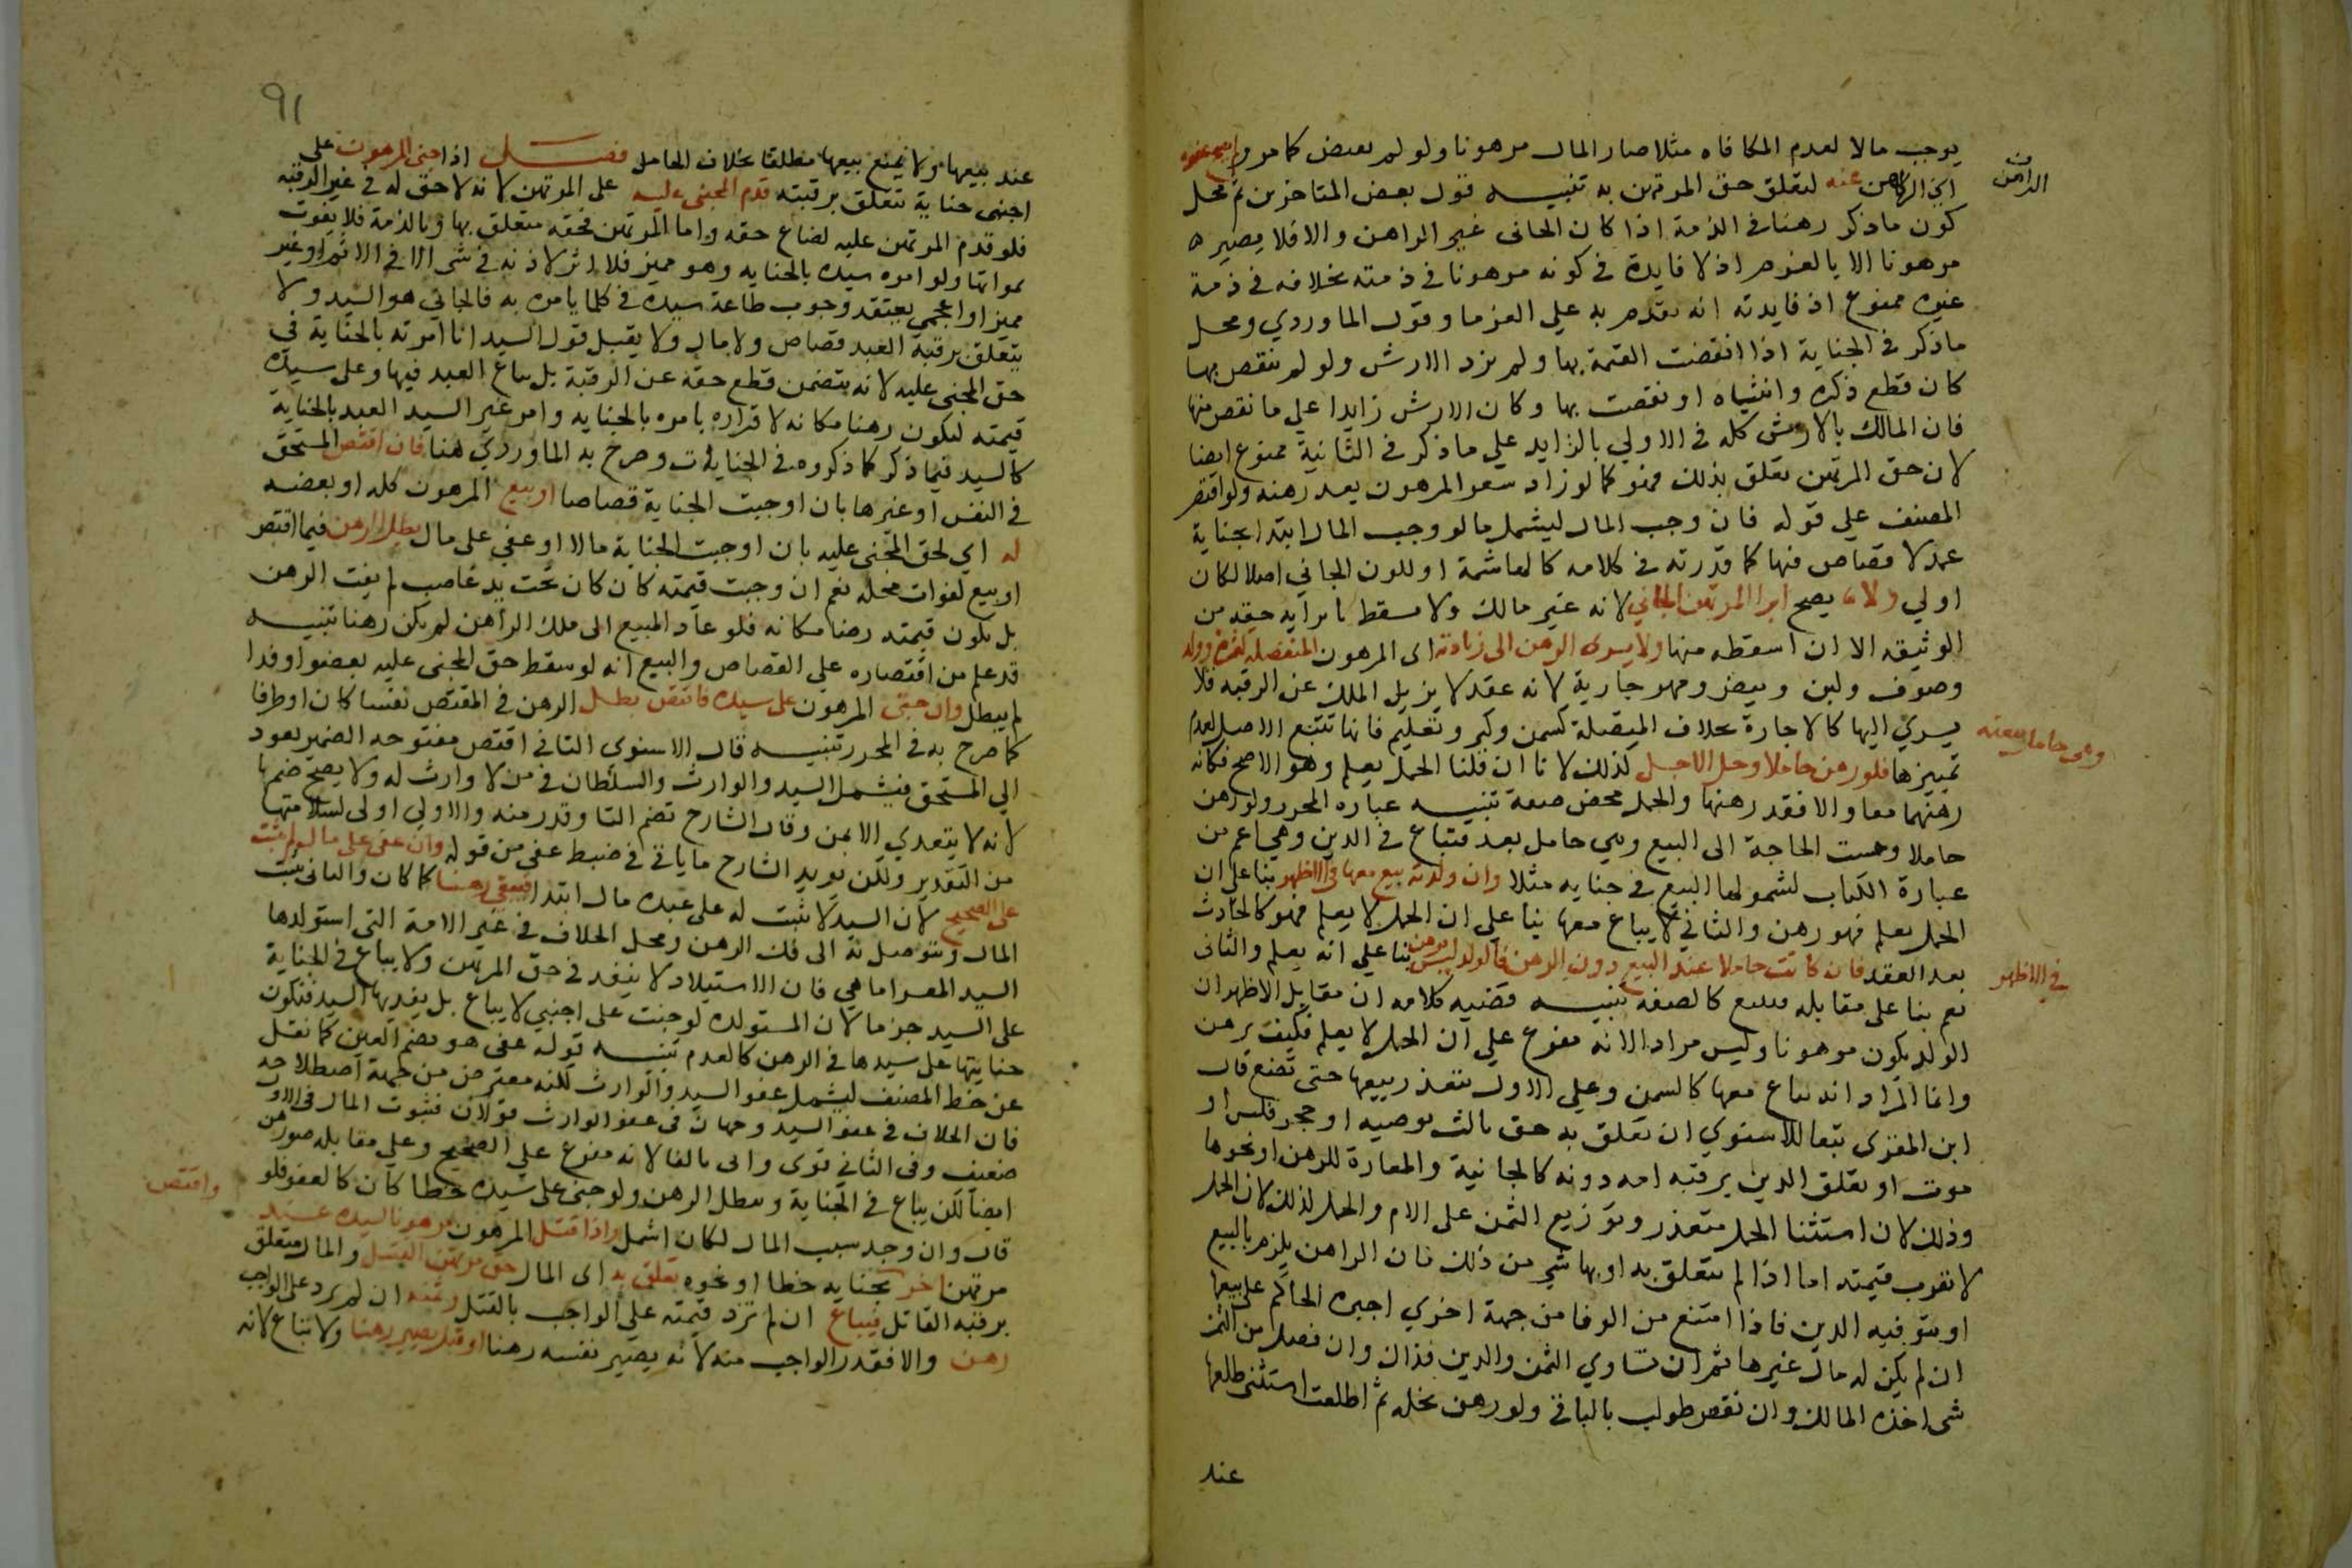 يوجب مالا لعدم المكافاه مثلا صار المال مرهونا ولو لم يقبض كما مر ولم يصح عفوه
الراهن
اي الراهن عنه لتعلق حق المرتهن به تنبيه قول بعض المتاخرين ثم محل
كون ما ذكر رهنا في الذمة اذا كان الجاني غير الراهن والا فلا يصير
مرهونا الا بالغرم اذ لا فايدة في كونه مرهونا في ذمته بخلافه في ذمة
غيره ممنوع اذ فايدته انه يقدم به على الغرما وقول الماوردي ومحل
ما ذكر في الجناية اذا انقضت القيمة بها ولم يزد الارش ولو لم تنقص بها
كان قطع ذكره وانثياه او نقصت بها وكان الارش زايدا على ما نقص منها
فان المالك بالارش كله في الاولي بالزايد علي ما ذكر في الثانية ممنوع ايضا
لان حق المرتهن تعلق بذلك فهو كما لو زاد سعر المرهون بعد رهنه ولو اقتصر
المصنف علي قوله فان وجب المال ليشمل ما لو وجب المال ابتدا بجناية
عمد لا قصاص فيها كما قدرته في كلامه كالهاشمة او لكون الجاني اصلا لكان
اولي ولا يصح ابرا المرتهن الجاني لانه غير مالك ولا يسقط بابرايه حقه من
الوثيقه الا ان اسقطه منها ولا يسري الرهن الى زيادته اي المرهون المنفصله كثمرة وولد
وصوف ولبن وبيض ومهر جارية لانه عقد لا يزيل الملك عن الرقبه فلا
يسري اليها كالاجارة بخلاف المتصلة كسمن وكبر وتعليم فانها تتبع الاصل لعدم
وهي حامل بيعته
تمييزها فلو رهن حاملا وحل الاجل كذلك لانا ان قلنا الحمل يعلم وهو الاصح فكانه
رهنهما معا والا فقد رهنها والحمل محض صفة تنبيه عبارة المحرر ولو رهن
حاملا ومست الحاجة الى البيع وهي حامل بعد فتباع في الدين وهي اعم من
عبارة الكتاب لشمولها البيع في جنايه مثلا وان ولدته بيع معها في الاظهر بنا علي ان
الحمل يعلم فهو رهن والثاني لا يباع معها بنا علي ان الحمل لا يعلم فهو كالحادث
بعد العقد فان كانت حاملا عند البيع دون الرهن فالولد ليس برهن بنا علي انه يعلم والثاني
في الاظهر
نعم بنا على مقابله فيتبع كالصفه تنبيه قضيه كلامه ان مقابل الاظهر ان
الولد يكون مرهونا وليس مرادا لانه مفرع علي ان الحمل لا يعلم فكيف يرهن
وانما المراد انه يباع معها كالسمن وعلي الاول يتعذر بيعها حتى تضع قال
ابن المقري تبعا للاسنوي ان تعلق به حق ثالث بوصيه او حجر فلس او
موت او تعلق الدين برقبه امه دونه كالجانية والمعارة للرهن او نحوها
وذلك لان استثنا الحمل متعذر وتوزيع الثمن على الام والحمل لذلك لان الحمل
لا تعرف قيمته اما اذا لم يتعلق به او بها شي من ذلك فان الراهن يلزم بالبيع
او بتوفيه الدين فاذا امتنع من الوفا من جهة اخري اجبره الحاكم على بيعها
ان لم يكن له مال غيرها ثم ان تساوي الثمن والدين فذاك وان فضل من الثمن
شي اخذه المالك وان نقص طولب بالباقي ولو رهن نخله ثم اطلعت استثنى طلعها
عند
91
عند بيعها ولا يمنع بيعها مطلقا بخلاف الحامل فصل اذا جنى المرهون على
اجنبي جناية تتعلق برقبته قدم المجني عليه على المرتهن لانه لا حق له في غير الرقبه
فلو قدم المرتهن عليه لضاع حقه واما المرتهن فحقه متعلق بها وبالذمة فلا يفوت
بمواتها ولو امره سيده بالجنايه وهو مميز فلا اثر لاذنه في شي الا في الاثم او غير
مميز او اعجمي يعتقد وجوب طاعة سيده في كل ما يامره به فالجاني هو السيد ولا
يتعلق برقبة العبد قصاص ولا مال ولا يقبل قول السيد انا امرته بالجناية في
حق المجني عليه لانه يتضمن قطع حقه عن الرقبة بل يباع العبد فيها وعلى سيده
قيمته لتكون رهنا مكانه لاقراره بامره بالجنايه وامر غير السيد العبد بالجناية
كالسيد فيما ذكر كما ذكروه في الجنايات وصرح به الماوردي هنا فان اقتص المستحق
في النفس او غيرها بان اوجبت الجناية قصاصا او بيع المرهون كله او بعضه
له اي لحق المجني عليه بان اوجبت الجناية مالا او عفي على مال بطل الرهن فيما اقتص
او بيع لفوات محله نعم ان وجبت قيمته كان كان تحت يد غاصب لم يفت الرهن
بل تكون قيمته رهنا مكانه فلو عاد المبيع الى ملك الراهن لم يكن رهنا تنبيه
قد علم من اقتصاره علي القصاص والبيع انه لو سقط حق المجني عليه بعفو او فدا
لم يبطل وان جنى المرهون على سيده فاقتص بطل الرهن في المقتص نفسا كان او طرفا
كما صرح به في المحرر تنبيه قال الاسنوي التا في اقتص مفتوحه الضمير يعود
الي المستحق فيشمل السيد والوارث والسلطان في من لا وارث له ولا يصح ضمها
لانه لا يتعدي الا بمن وقال الشارح تضم التا وقدر منه والاولي اولى لسلامتها
من التقدير ولكن يويد الشارح ما ياتي في ضبط عفي من قوله وان عفى على مال لم يثبت
على الصحيح لان السيد لا يثبت له على عبده مال ابتدا فيبقى رهنا كما كان والثاني يثبت
المال ويتوصل به الى فك الرهن ومحل الخلاف في غير الامة التي استولدها
السيد المعسر اما هي فان الاستيلاد لا ينفذ في حق المرتهن ولا يباع في الجناية
على السيد جزما لان المستولده لو جنت على اجنبي لا يباع بل يفديها السيد فتكون
جنايتها على سيدها في الرهن كالعدم تنبيه قوله عفي هو بضم العين كما نقل
عن خط المصنف ليشمل عفو السيد والوارث لكنه معترض من جهة اصطلاحه
فان الخلاف في عفو السيد وجهان في عفو الوارث قولان فثبوت المال في الاول
ضعيف وفي الثاني قوي واتى بالفا لانه مفرع علي الصحيح وعلي مقابله صور رهن
ايضا لكن يباع في الجناية ويبطل الرهن ولو جنى على سيده خطا كان كالعفو فلو
قال وان وجد سبب المال لكان اشمل واذا قتل المرهون مرهونا لسيده عند
واقتص
مرتهن اخر بجنايه خطا او نحوه تعلق به اي المال حق مرتهن القتيل والمال متعلق
برقبه القاتل فيباع ان لم تزد قيمته علي الواجب بالقتل وثمنه ان لم يزد على الواجب
رهن والا فقدر الواجب منه لانه يصير نفسه رهنا وقيل يصير رهنا ولا يباع لانه